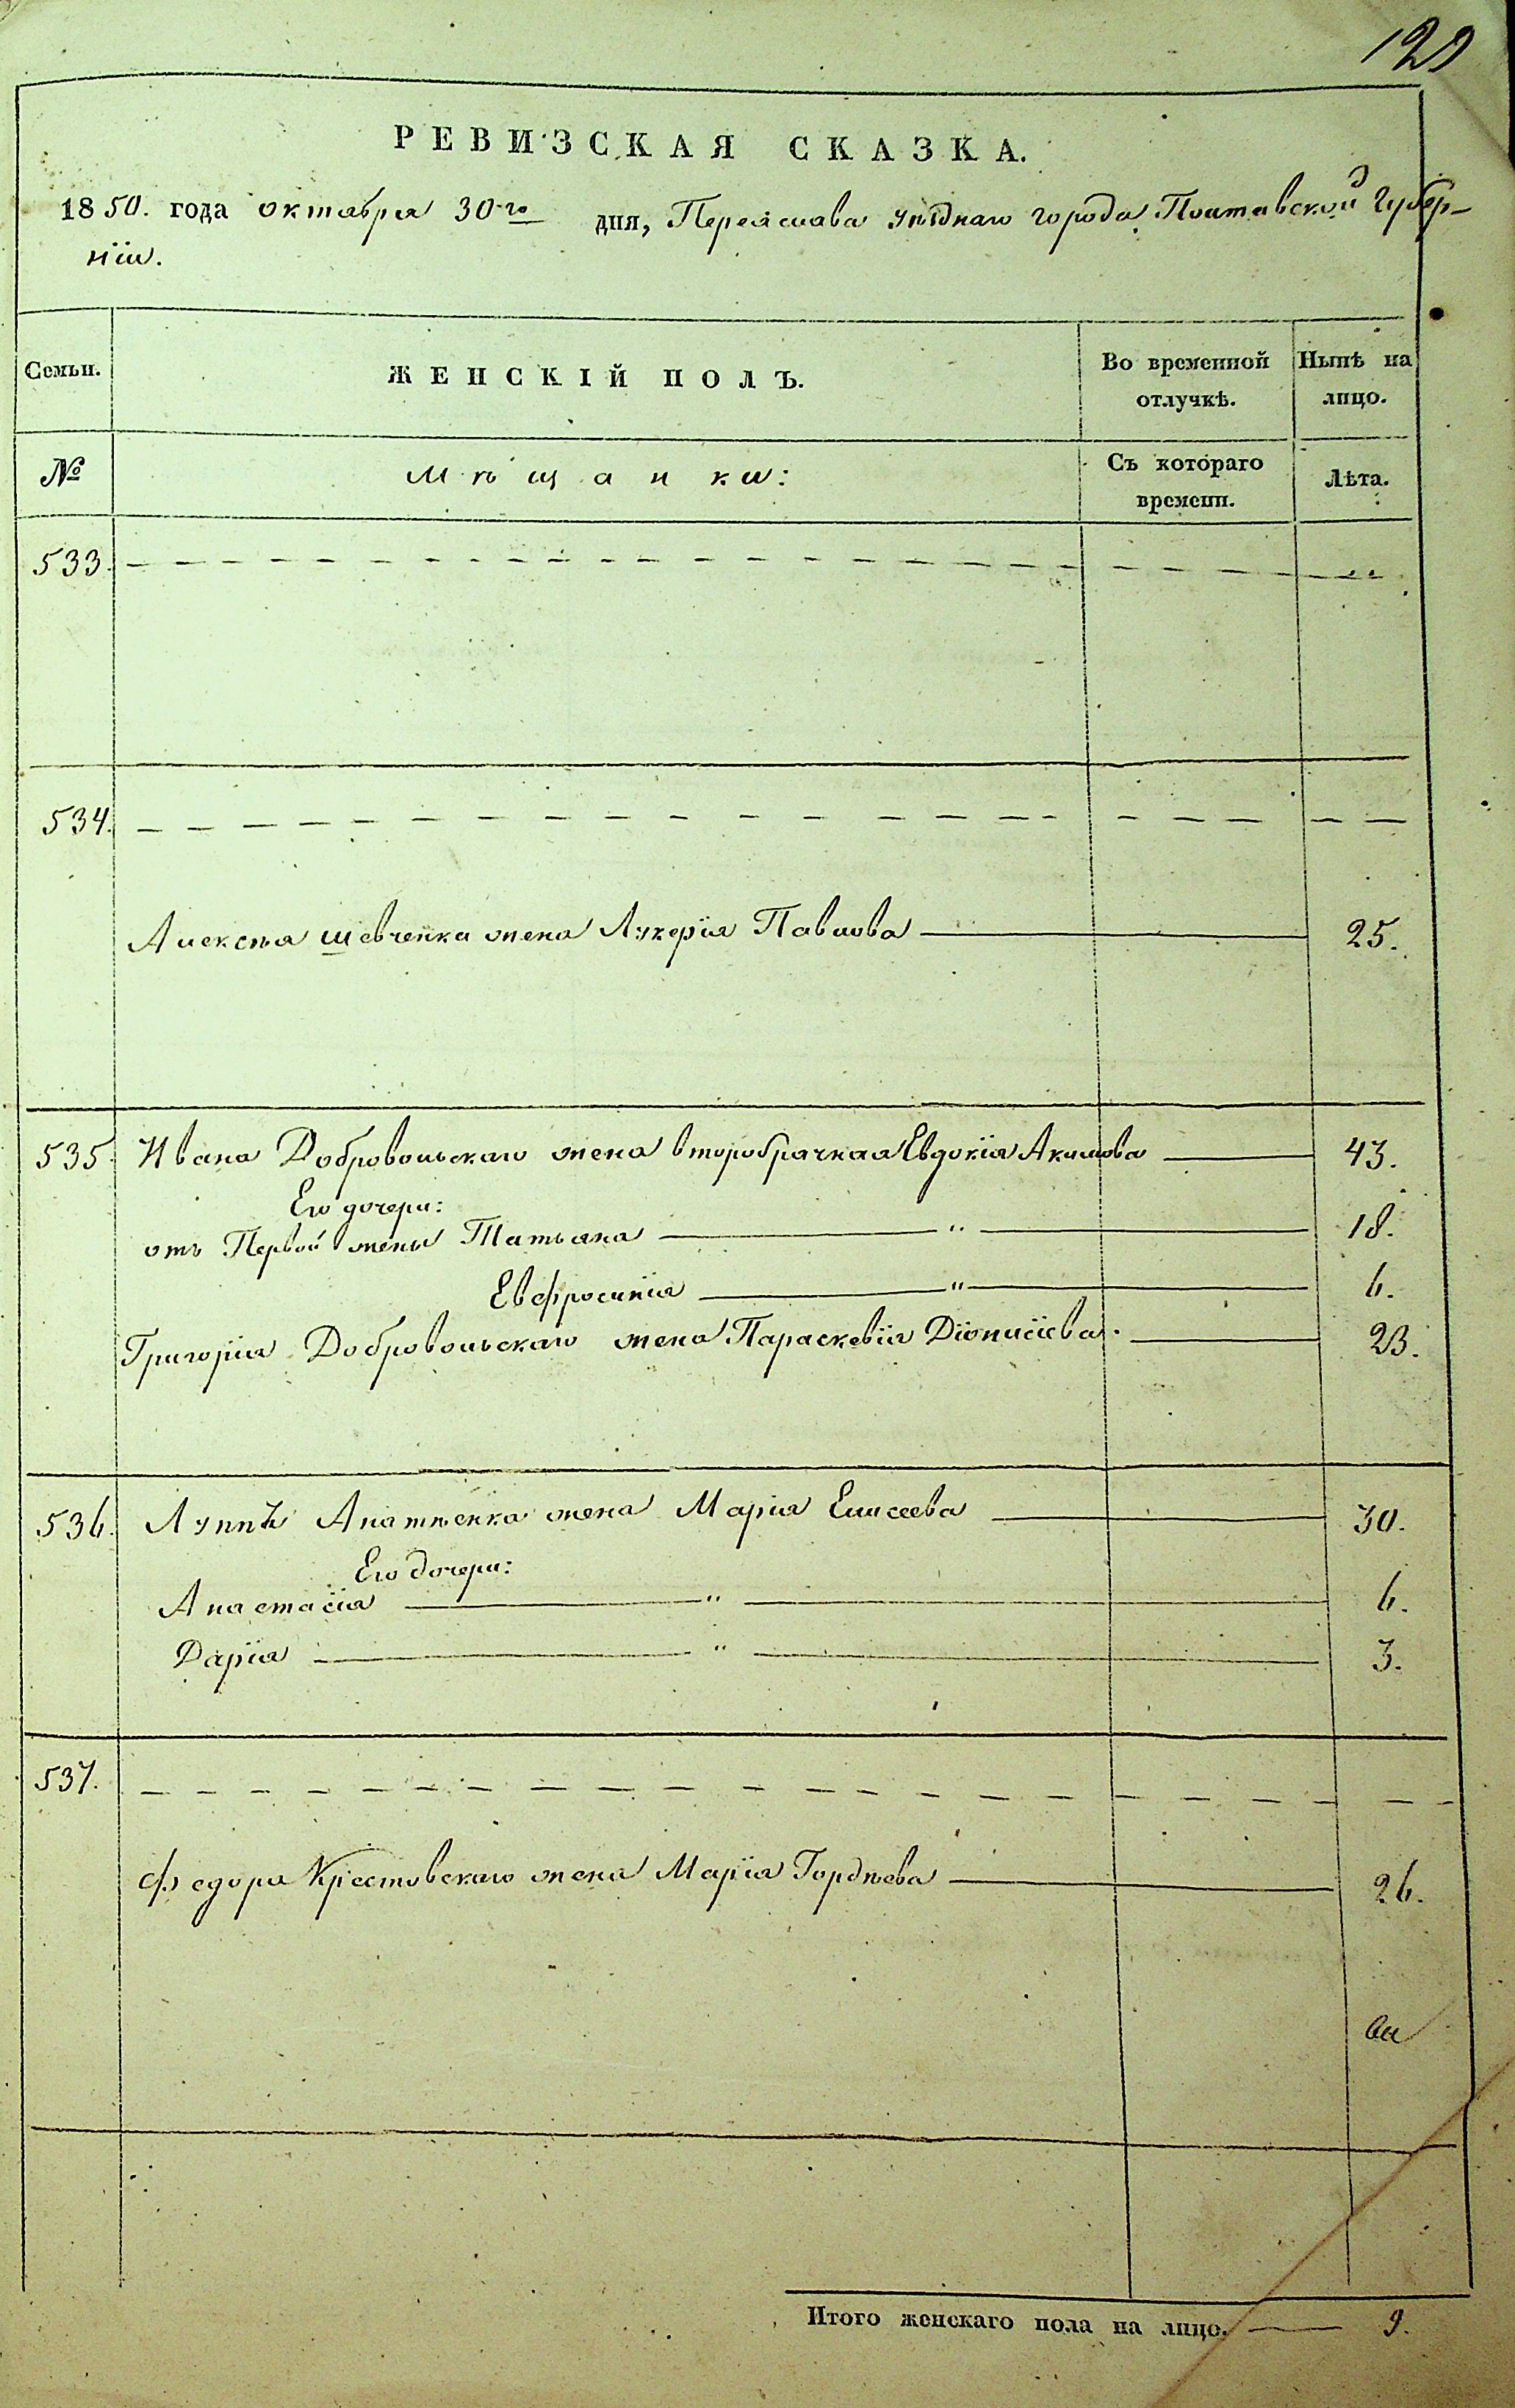 129
РЕВИЗСКАЯ СКАЗКА.
1850. года октября 30-го дня, Переяслава уѣзднаго города Полтавской Губер-
ніи.
Семьи. ЖЕНСКІЙ ПОЛЪ. Во временной отлучкѣ. Нынѣ на лицо.
№ Мѣщанки: Съ котораго времени. Лѣта.
533.
534.
Алексѣя Шевченка жена Лукерія Павлова 25.
535. Ивана Добровольскаго жена второбрачная Евдокія Акимова 43.
Его дочери:
отъ Первой жены Татьяна " 18.
Евфросинія " 6.
Григорія Добровольскаго жена Параскевія Діонисіева 23.
536. Луппѣ Анатѣенка жена Марія Елисеева 30.
Его дочери:
Анастасія " 6.
Дарія " 3.
537.
Федора Крестовскаго жена Марія Гордѣева 26.
Итого женскаго пола на лицо. 9.